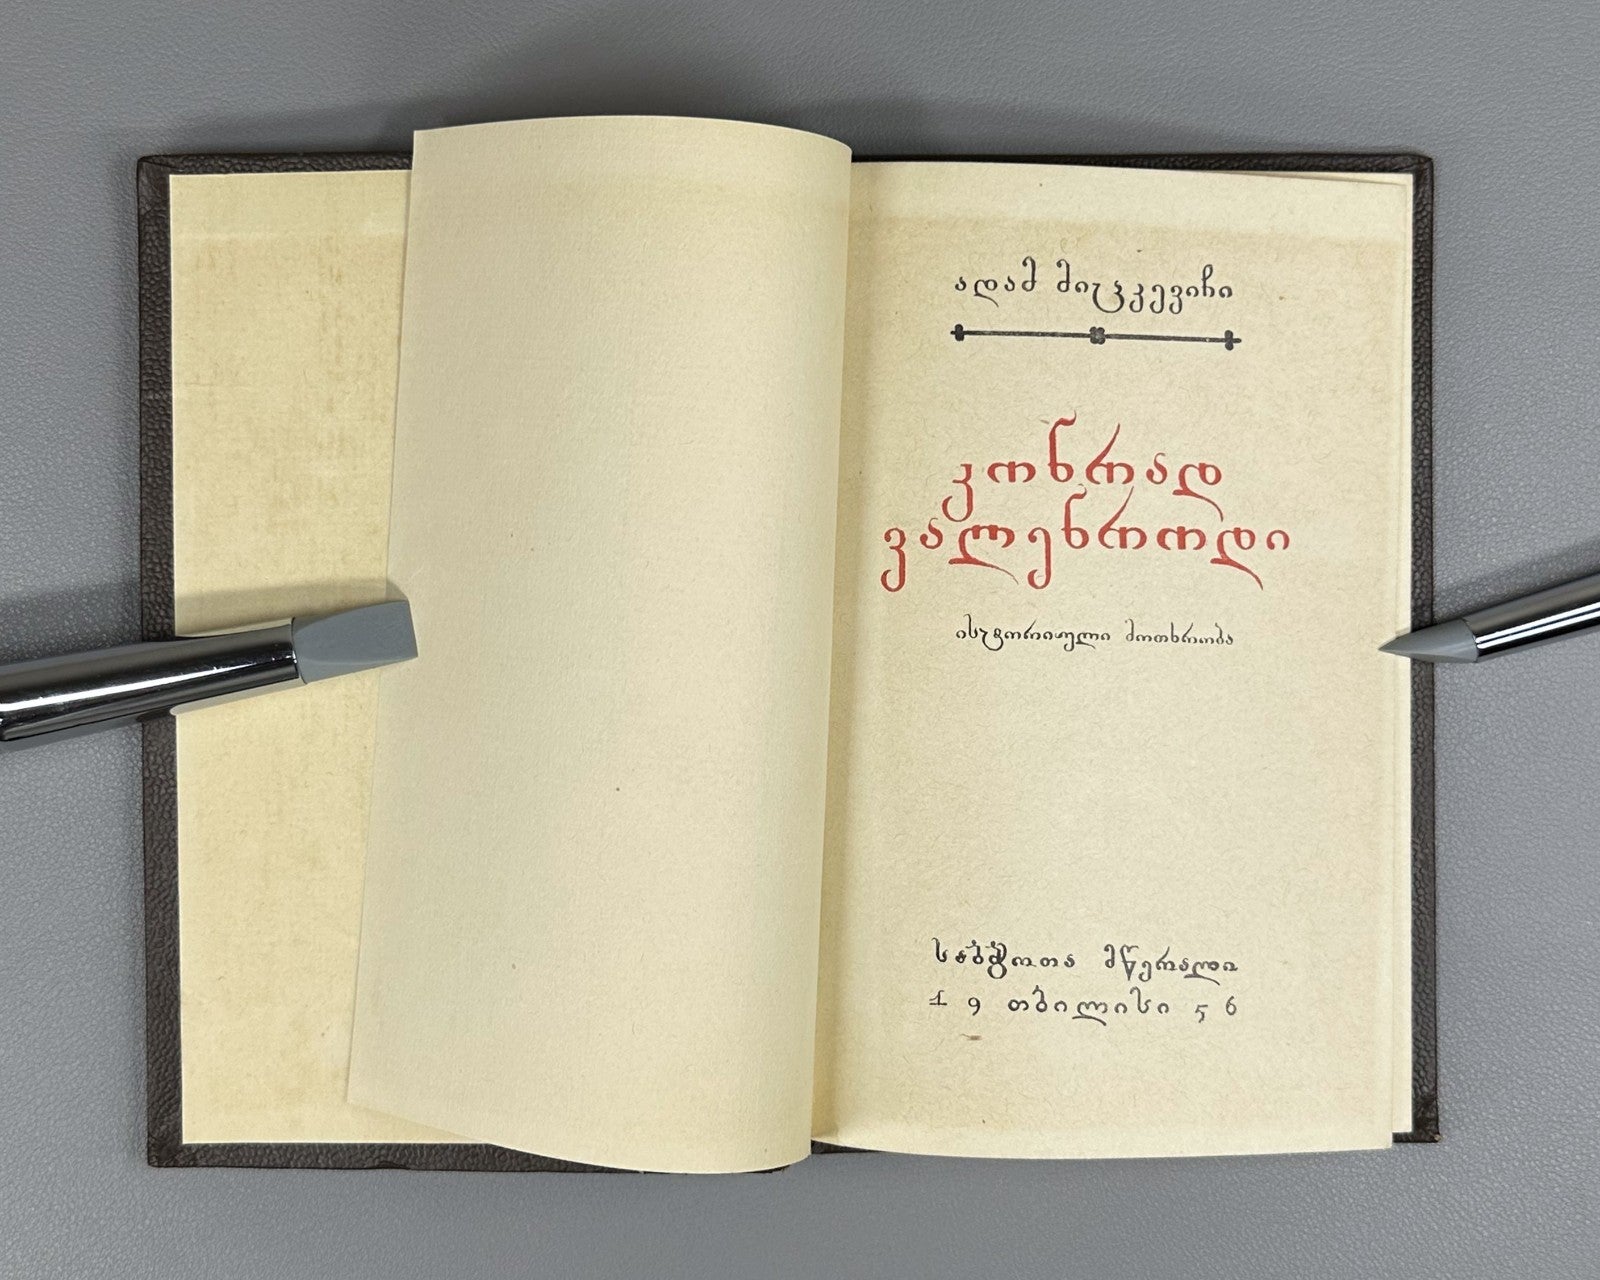 ადამ მიცკევიჩი
კონრად
ვალენროდი
ისტორიული მოთხრობა
საბჭოთა მწერალი
19 თბილისი 56